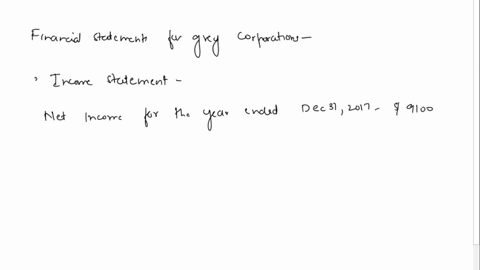 Financial statements for grey corporations-
, Income statement -
Net Income for the year ended Dec 31, 2017 - $ 9100